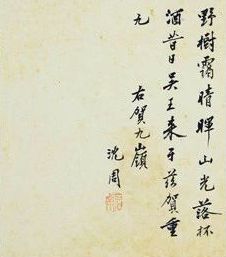 野樹靄晴暉山光落杯
酒昔日吳王來于茲賀重
九
右賀九嶺
沈周